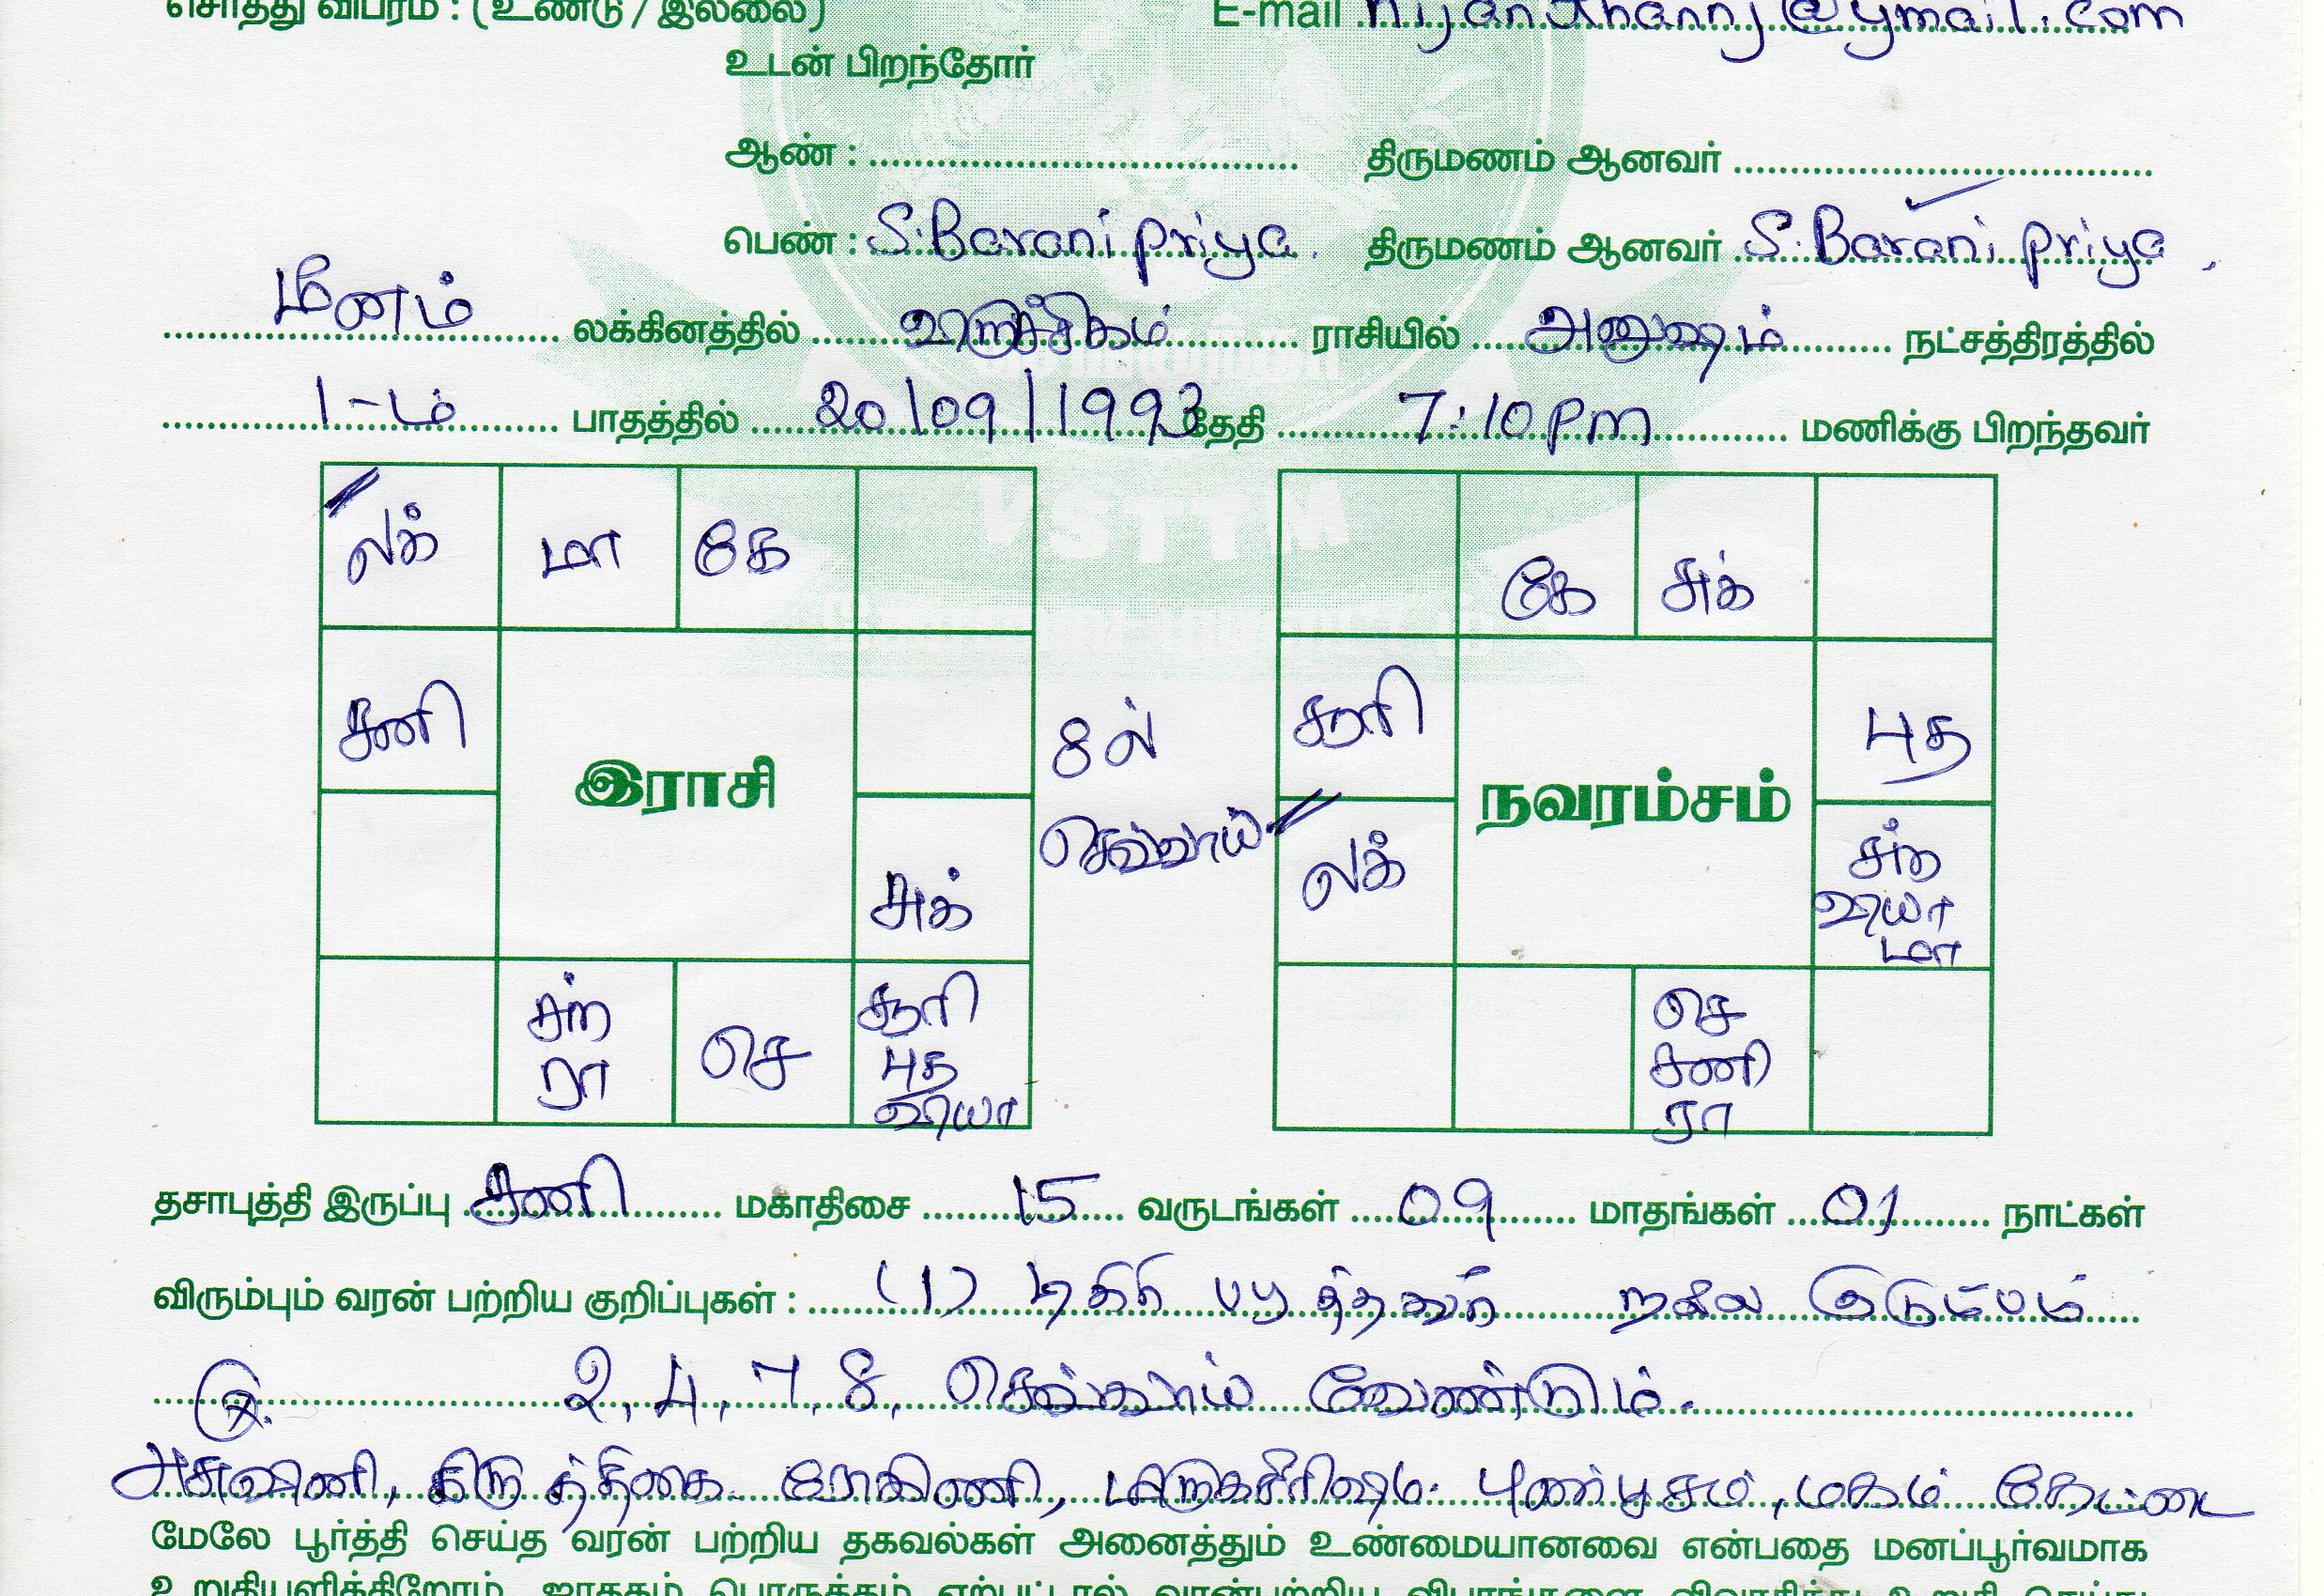 சொத்து விபரம் : (உண்டு / இல்லை) E-mail
உடன் பிறந்தோர்
ஆண் : திருமணம் ஆனவர்
பெண் : S.Barani priya. திருமணம் ஆனவர் S.Barani priya.
மீனம் லக்கினத்தில் விருச்சிகம் ராசியில் அனுஷம் நட்சத்திரத்தில்
1-ம் பாதத்தில் 20/09/1993 தேதி 7:10 pm மணிக்கு பிறந்தவர்
VSTTM
லக் மா கே
சனி
இராசி
சுக்
சந் ரா செ சூரி புத வியா
8ல் செவ்வாய்
கே சுக்
சூரி புத
நவரம்சம்
லக் சந் வியா மா
செ சனி ரா
தசாபுத்தி இருப்பு சனி மகாதிசை 15 வருடங்கள் 09 மாதங்கள் 01 நாட்கள்
விரும்பும் வரன் பற்றிய குறிப்புகள் : (1) டிகிரி படித்தவர் நல்ல குடும்பம்
2, 4, 7, 8, செவ்வாய் வேண்டும்.
அசுவினி, கிருத்திகை. ரோகிணி, மிருகசீரிஷம். புனர்பூசம், மகம் கேட்டை
மேலே பூர்த்தி செய்த வரன் பற்றிய தகவல்கள் அனைத்தும் உண்மையானவை என்பதை மனப்பூர்வமாக